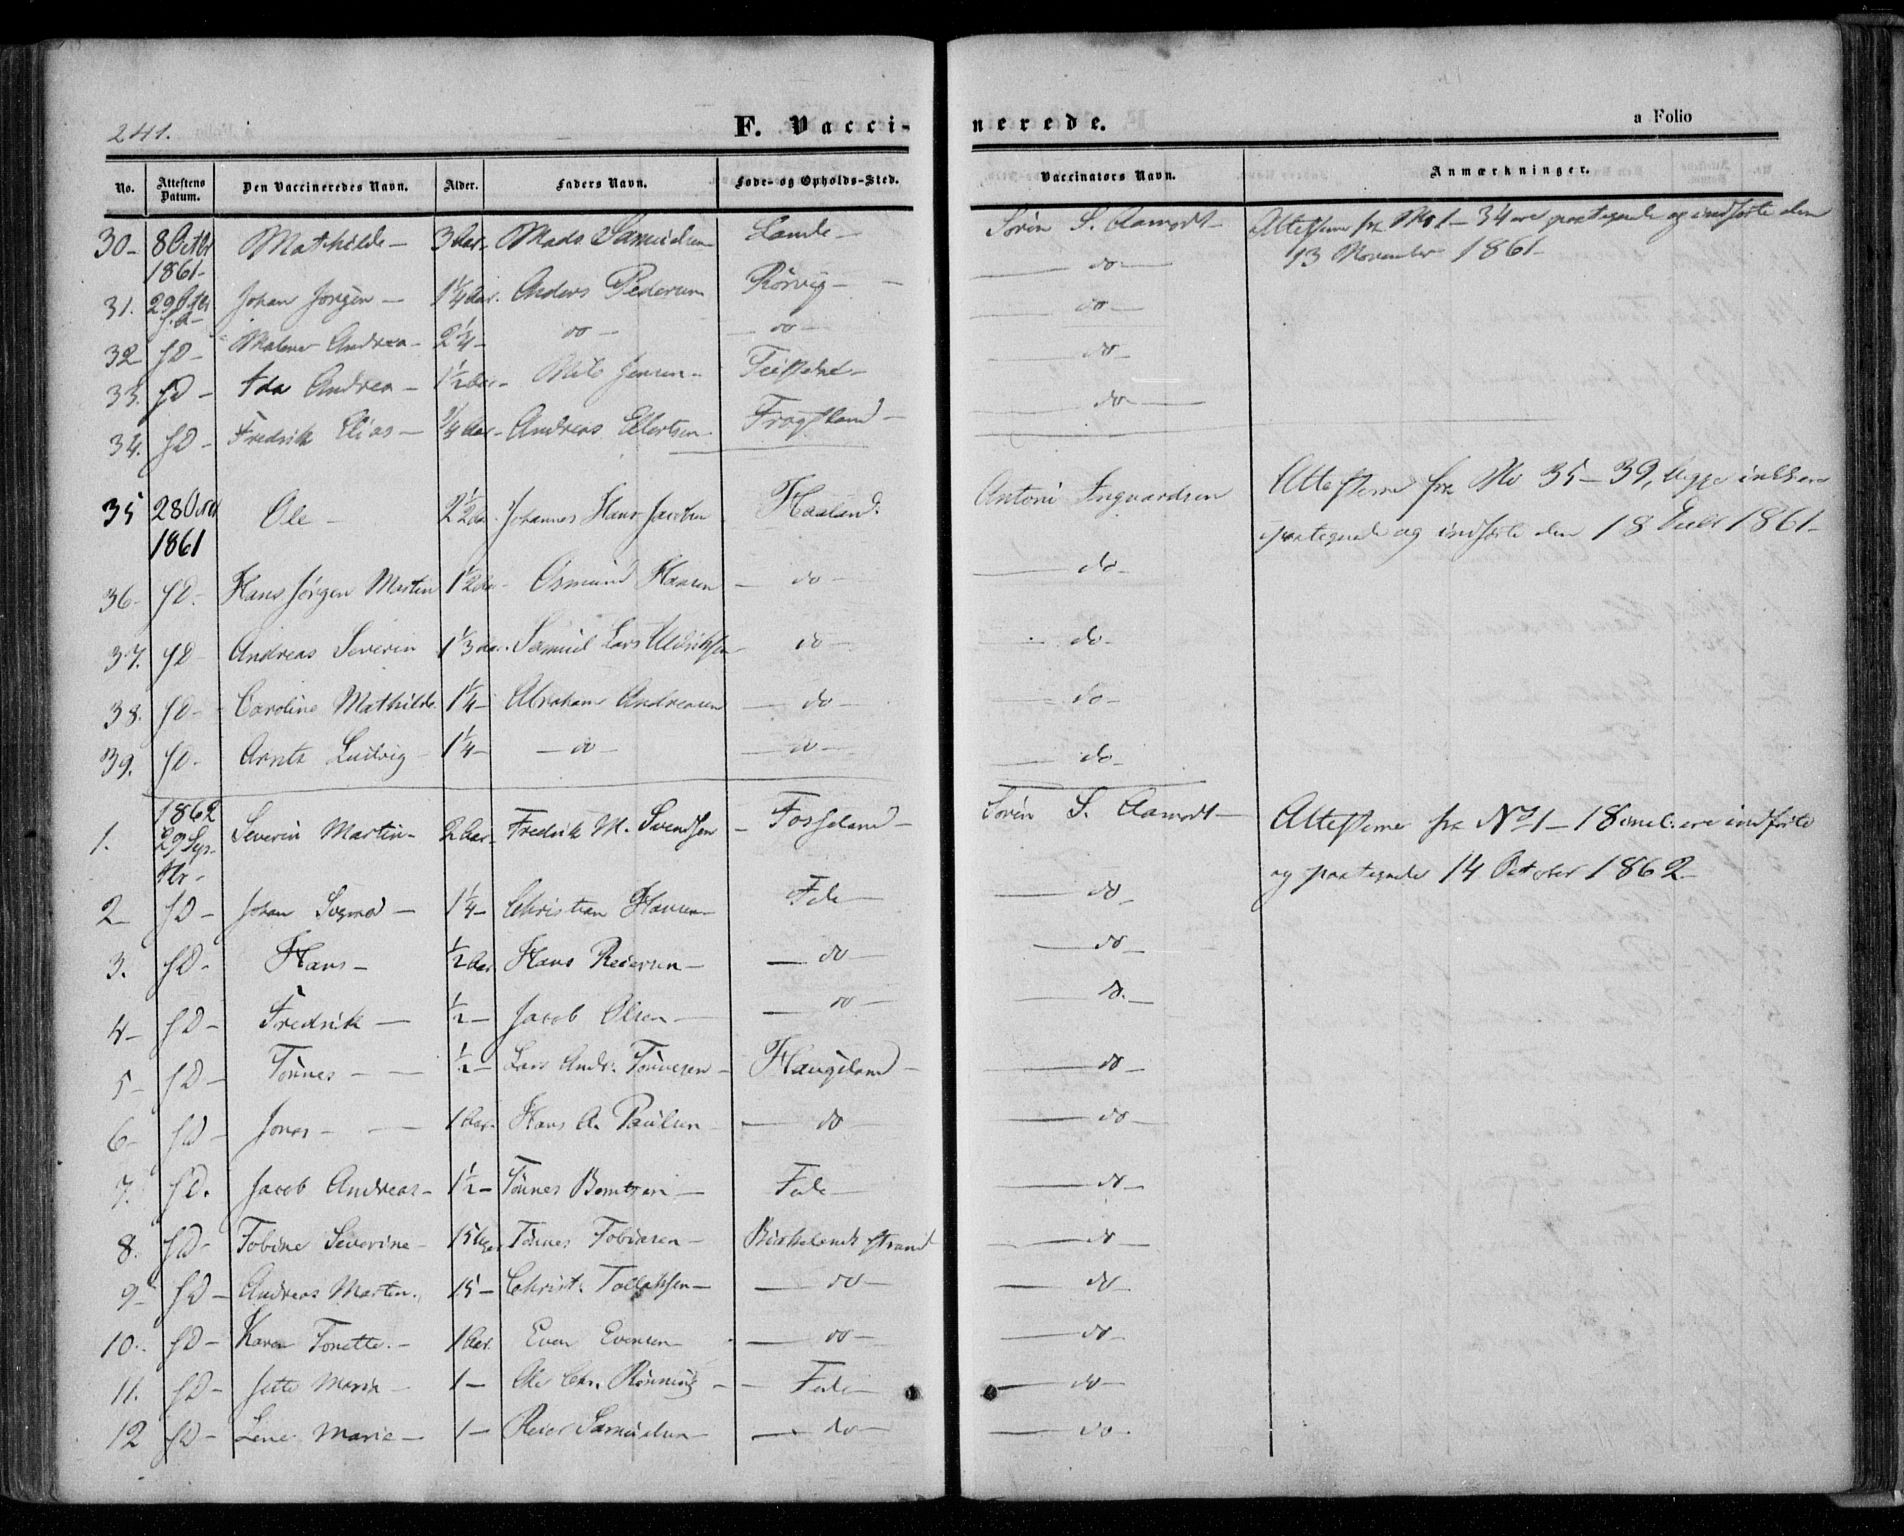 241.
F. Vaccinerede.
a Folio
No. Attestens Datum. Den Vaccineredes Navn. Alder. Faders Navn. Føde- og Opholds-Sted. Vaccinators Navn. Anmærkninger.
30- 8 Octbr 1861- Mathilde- 3 Aar- Mads Samuelsen Lande- Sørin S. Aamodt- Attesterne fra No 1-34 ere paategnede og indførte den
13 November 1861-
31. 29 f. A- Johan Jørgen- 1 1/4 Aar. Anders Pedersen Rørvig- do-
32 f D- Malene Andrea- 2 1/4- do- do- do-
33. f D- Ada Andrea- 1 1/2 Aar- Nils Jensen- do-
34. f D- Fredrik Elias- 3/4 Aar- Andreas Ellertsen
35 28 1861 Ole- 2 1/2 Aar. Johannes Hans Jacobsen Haaland. Antoni Ingvardsen Attesterne fra No 35-39, ligge
paategnede og indførte den 18 1861-
36- f D- Hans Jørgen Martin 1 1/2 Aar- Osmund Hansen do- do-
37. f D- Andreas Severin 1 1/3 Aar. Samuel Lars Uldriksen do- do-
38. f D- Caroline Mathilde 1 1/4- Abraham Andreasen do- do-
39. f D- Arnts Ludvig- 1 1/4- do- do- do-
1. 1862 29 Septbr- Severin Martin- 2 Aar- Fredrik M. Svendsen- Fosseland- Sørin S. Aamodt- Attesterne fra No 1-18 incl. ere indførte
og paategnede 14 October 1862-
2- f D- Johan Sigmod- 1 1/4- Christian Hansen- Fede- do-
3. f D- Hans- 1/2 Aar. Hans Pedersen- do- do-
4- f D- Fredrik- 1/2- Jacob Olsen- do- do.-
5- f D- Tönnes- 1/2- Lars Andr. Tönnesen- Haugeland- do-
6- f D- Jonas- 1 Aar- Hans A. Paulsen- do- do-
7. f D. Jacob Andreas- 1 1/2- Tönnes Berntsen- Fede- do-
8. f D- Tobine Severine- 15 Uger Tönnes Tobiasen- Birkelands strand do-
9- f D- Andreas Martin. 15- Christ. Tollaksen- do- do-
10. f D- Karen Tonette.- 1 Aar. Even Evensen- do- do-
11. f D- Jette Maria- 1- Ole Chr. Rönning- Fede- do-
12 f D- Lene Marie- 1- Reier Samuelsen- do- do-